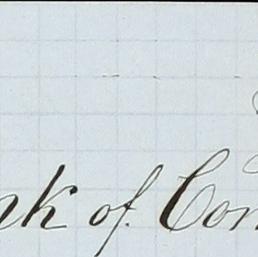 nk of. Con